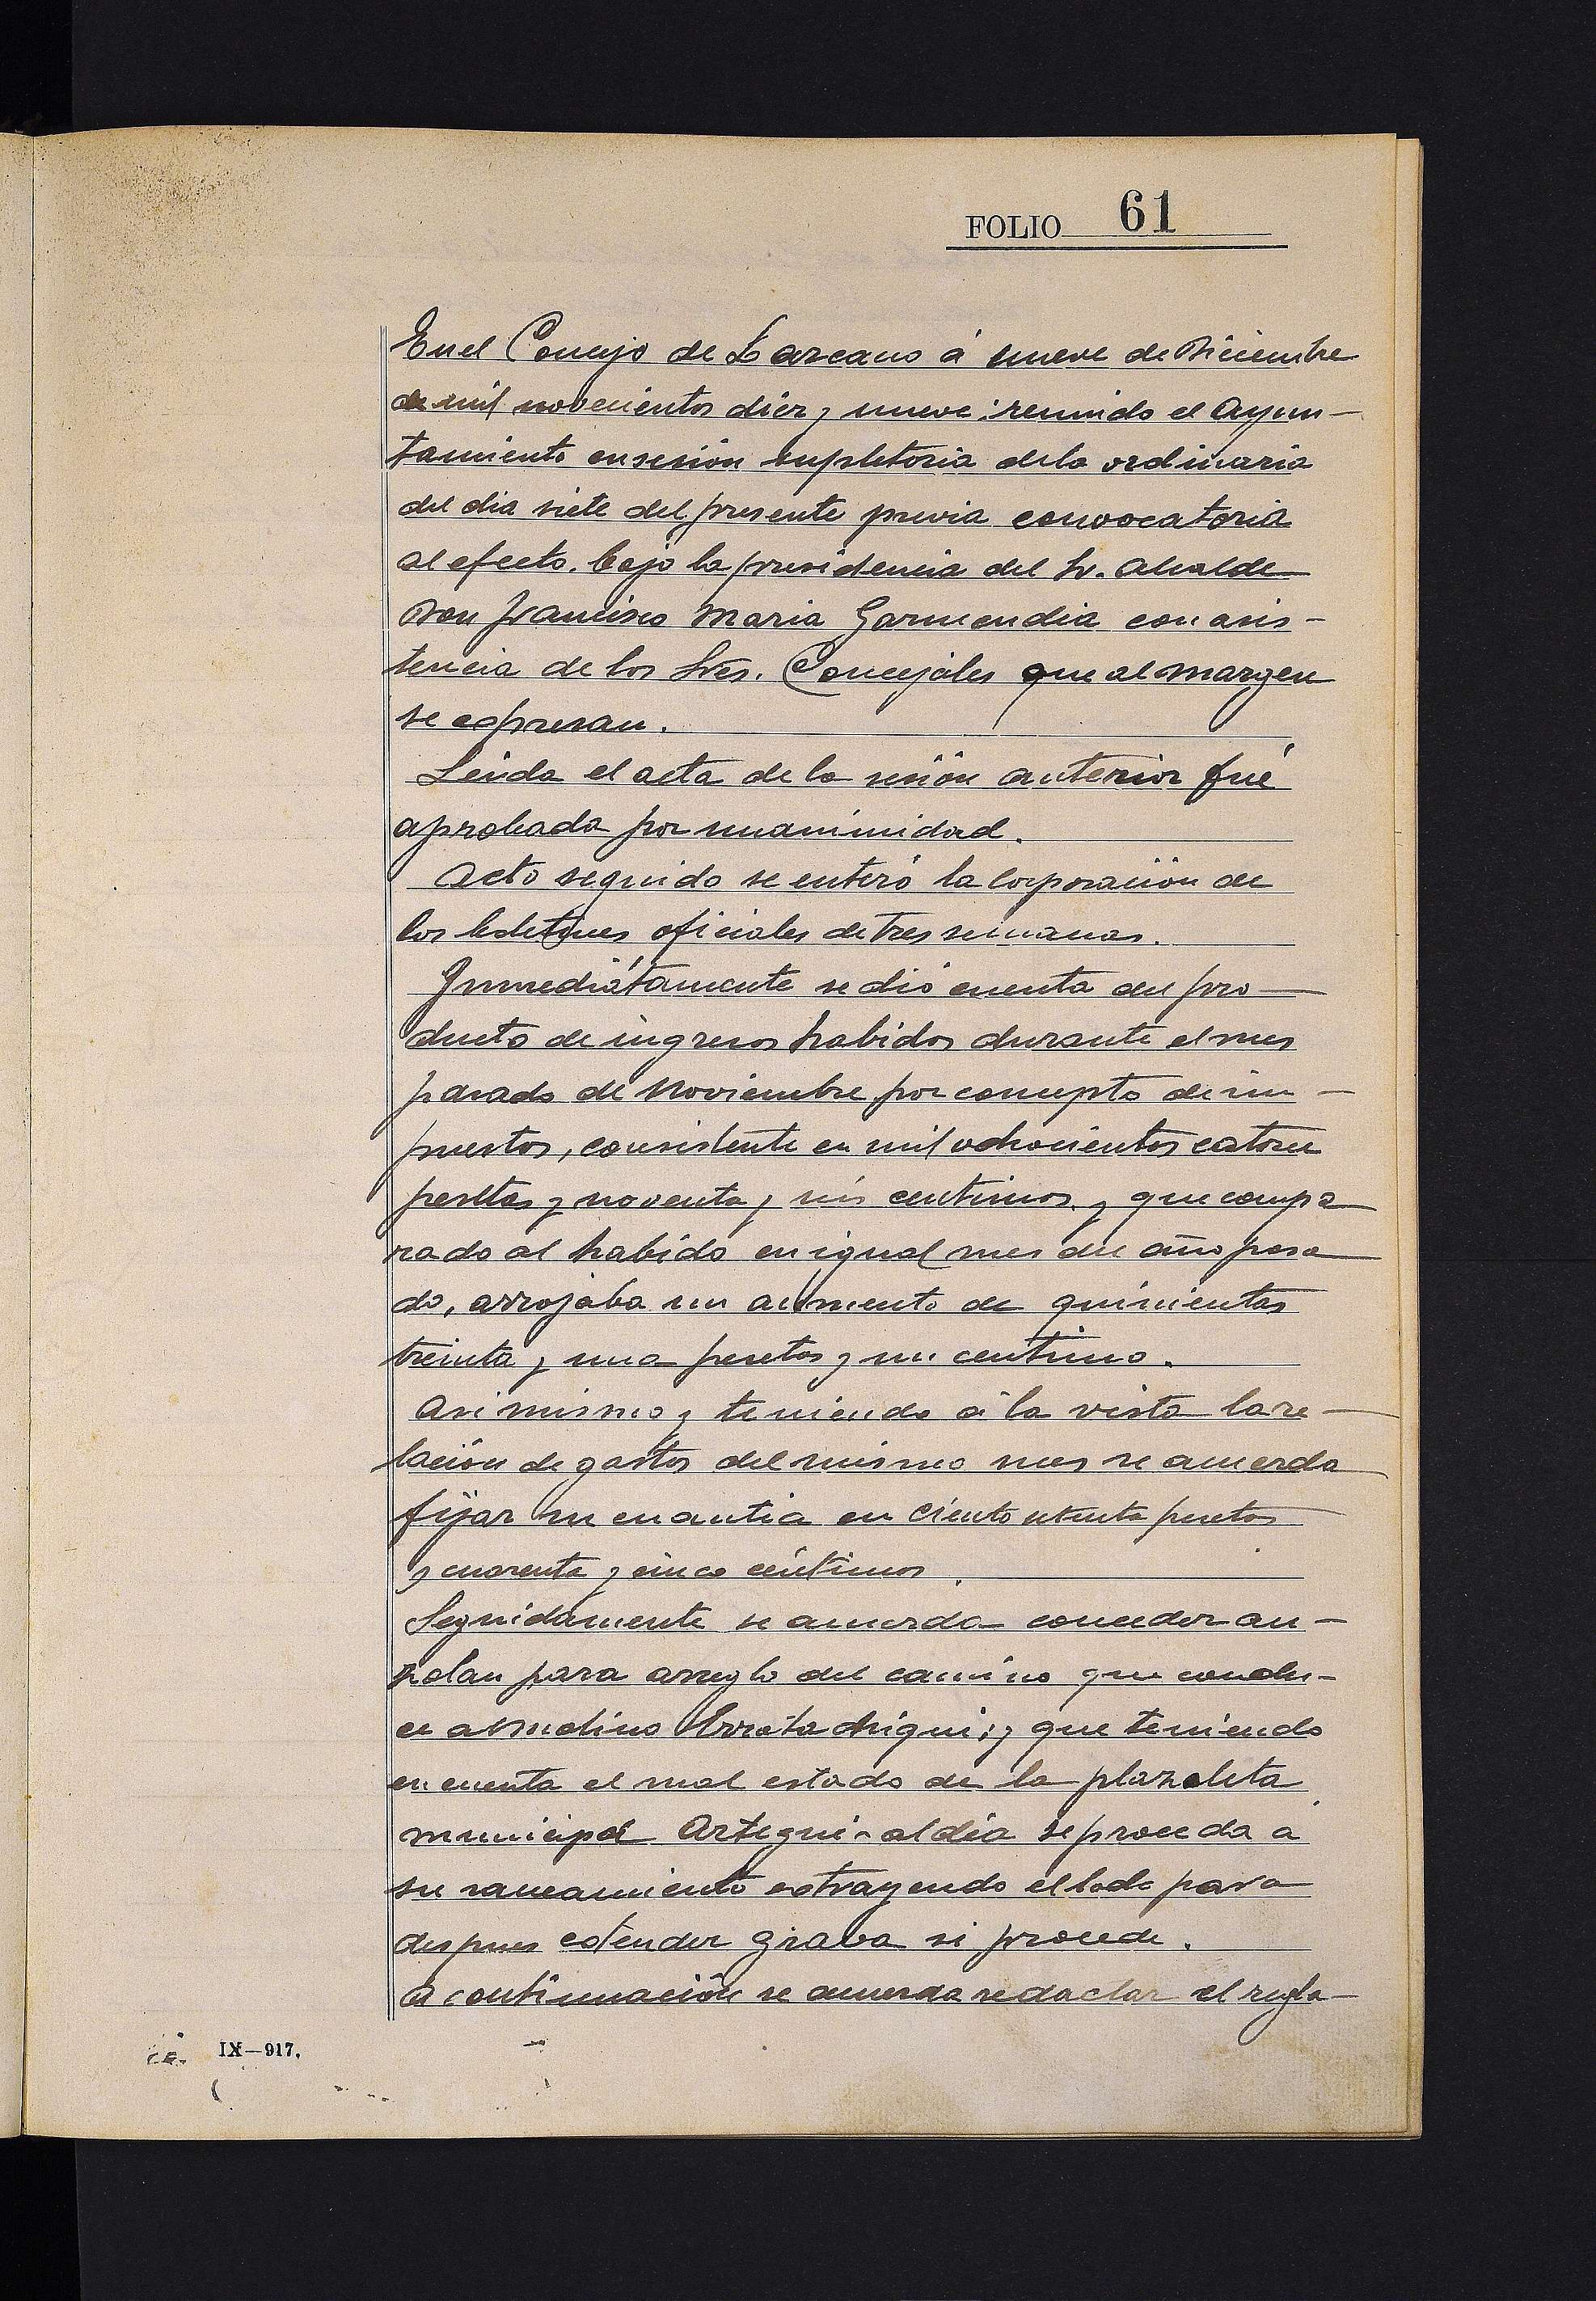 FOLIO 61
En el Concejo de Lazcano á nueve de Diciembre
de mil novecientos diez y nueve: reunido el Ayun-
tamiento en sesión supletoria de la ordinaria
del dia siete del presente previa convocatoria
al efecto. bajo la presidencia del Sr. Alcalde
Don Francisco Maria Garmendia con asis-
tencia de los Sres. Concejales que al margen
se espresan.
Leida el acta de la sesión anterior fué
aprobada por unanimidad.
Acto seguido se enteró la Corporación de
los boletines oficiales de tres semanas.
Inmediátamente se dió cuenta del pro-
ducto de ingresos habidos durante el mes
pasado de Noviembre por concepto de im-
puestos, consistente en mil ochocientos catorce
pesetas y noventa y seis centimos. y que compa
rado al habido en igual mes del año pasa
do, arrojaba un aumento de quinientas
treinta y una pesetas y un centimo.
Asi mismo y teniendo á la vista la re-
lación de gastos del mismo mes se acuerda
fijar su cuantia en ciento setenta pesetas
y cuarenta y cinco céntimos.
Seguidamente se acuerda conceder au-
zolan para arreglo del camino que condu-
ce al molino Errota chiqui; y que teniendo
en cuenta el mal estado de la plazoleta
municipal Artegui-aldea se proceda á
su saneamiento estrayendo el lodo para
despues estender grava si procede.
A continuación se acuerda redactar el regla-
IX—917.